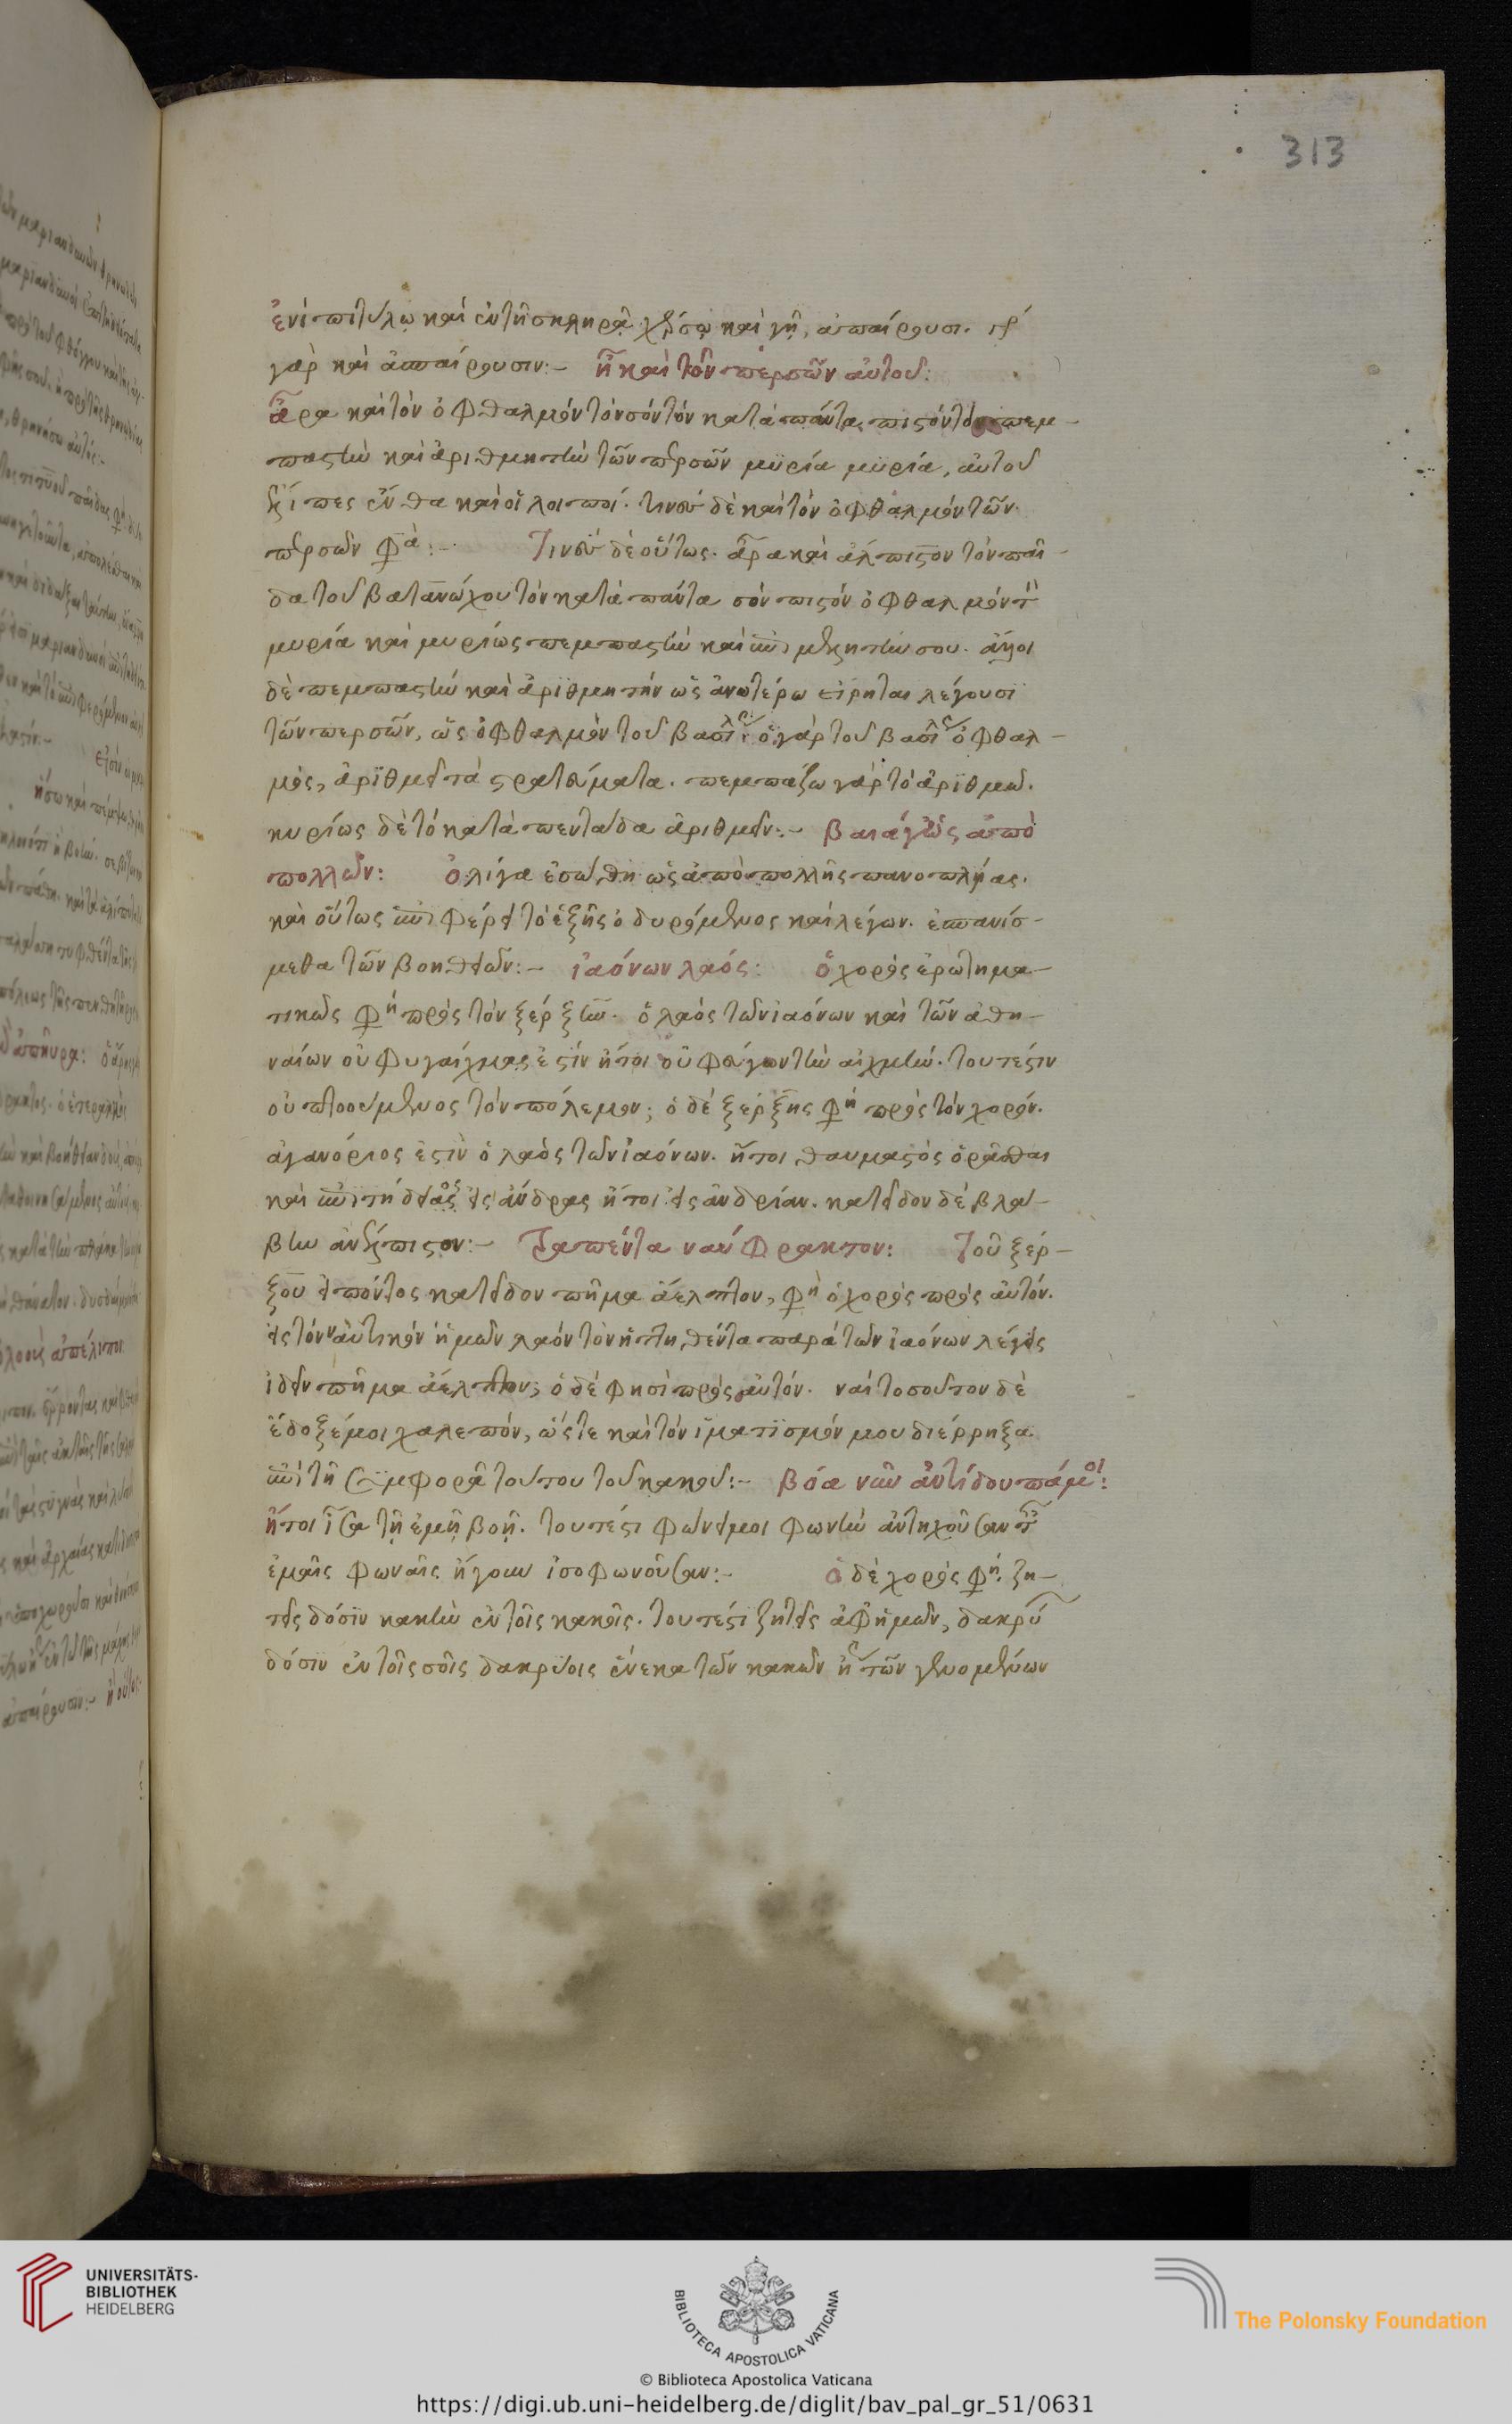 313
ἑνὶ πιτύλῳ καὶ ἐν τῇ σκληρᾷ χέρσῳ καὶ γῇ, ἀπαίρουσι.
γὰρ καὶ ἀπαίρουσιν:– ἦ καὶ τὸν περσῶν αὐτοῦ:
ἆρα καὶ τὸν ὀφθαλμὸν τὸν σὸν τὸν κατὰ πάντα πιστὸν τὸν πεμ-
παστὴν καὶ ἀριθμητὴν τῶν περσῶν μϋρία μϋρία, αὐτοῦ
ἔλιπες ἔνθα καὶ οἱ λοιποί. τινὲς δὲ καὶ τὸν ὀφθαλμὸν τῶν
περσῶν φασί:– Τινὲς δὲ οὕτως. ἆρα καὶ ἄλπιστον τὸν παῖ-
δα τοῦ βατανώχου τὸν κατὰ πάντα σὸν πιστὸν ὀφθαλμὸν τὸν
μυρία καὶ μυρίως πεμπαστὴν καὶ ἐπιμελητήν σου. ἄλλοι
δὲ πεμπαστὴν καὶ ἀρϊθμητήν ὡς ἀνωτέρω εἴρηται λέγουσϊ
τῶν περσῶν, ὡς ὀφθαλμὸν τοῦ βασιλέως· ὁ γὰρ τοῦ βασιλέως ὀφθαλ-
μὸς, ἀρϊθμεῖ τὰ στρατεύματα. πεμπάζω γὰρ τὸ ἀρϊθμῶ.
κυρίως δὲ τὸ κατὰ πεντάδα ἀριθμεῖν:– βαιά γ᾽ ὡς ἀπὸ
πολλῶν: ὀλίγα ἐσώθη ὡς ἀπὸ πολλῆς πανοπλίας.
καὶ οὕτως ἐπιφέρει τὸ ἑξῆς ὀδυρόμενος καὶ λέγων. ἐσπανίσ-
μεθα τῶν βοηθειῶν:– ἰαόνων λαός: ὁ χορὸς ἐρωτημα-
τικῶς φησὶ πρὸς τὸν ξέρξην. ὁ λαὸς τῶν ἰαόνων καὶ τῶν ἀθη-
ναίων οὐ φυγαίχμας ἐστίν ἤτοι οὐ φεύγων τὴν αἰχμήν. τουτέστιν
οὐ πτοούμενος τὸν πόλεμον; ὁ δὲ ξέρξης φησὶ πρὸς τὸν χορόν.
ἀγανόριος ἐστὶν ὁ λαὸς τῶν ἰαόνων. ἤτοι θαυμαστὸς ὁρᾶσθαι
καὶ ἐπιτήδειος εἰς ἄνδρας ἤτοι εἰς ἀνδρίαν. κατεῖδον δὲ βλά-
βην ἀνέλπιστον:– Τραπέντα ναύφρακτον: Τοῦ ξέρ-
ξου εἰπόντος κατεῖδον πῆμα ἄελπτον, φησὶ ὁ χορὸς πρὸς αὐτόν.
εἰς τὸν ναυτικὸν ἡμῶν λαὸν τὸν ἡττηθέντα παρὰ τῶν ἰαόνων λέγεις
ἰδεῖν πῆμα ἄελπτον; ὁ δέ φησὶ πρὸς αὐτόν. ναί τοσοῦτον δὲ
ἔδοξέ μοι χαλεπόν, ὥστε καὶ τὸν ἱματϊσμόν μου διέρρηξα
ἐπὶ τῇ συμφορᾷ τούτου τοῦ κακοῦ:– βόα νῦν ἀντίδουπά μοι:
ἤτοι ἶσα τῇ ἐμῇ βοῇ. τουτέστι φώνει μοι φωνὴν ἀντηχοῦσαν ταῖς
ἐμαῖς φωναῖς ἤγουν ἰσοφωνοῦσαν:– ὁ δὲ χορὸς φησί. ζη-
τεῖς δόσϊν κακὴν ἐν τοῖς κακοῖς. τουτέστι ζητεῖς ἀφ᾽ ἡμῶν, δακρύων
δόσϊν ἐν τοῖς σοῖς δακρύοις ἕνεκα τῶν κακῶν τῶν γενομένων
UNIVERSITÄTS-
BIBLIOTHEK
HEIDELBERG
BIBLIOTECA APOSTOLICA VATICANA
The Polonsky Foundation
© Biblioteca Apostolica Vaticana
https://digi.ub.uni-heidelberg.de/diglit/bav_pal_gr_51/0631